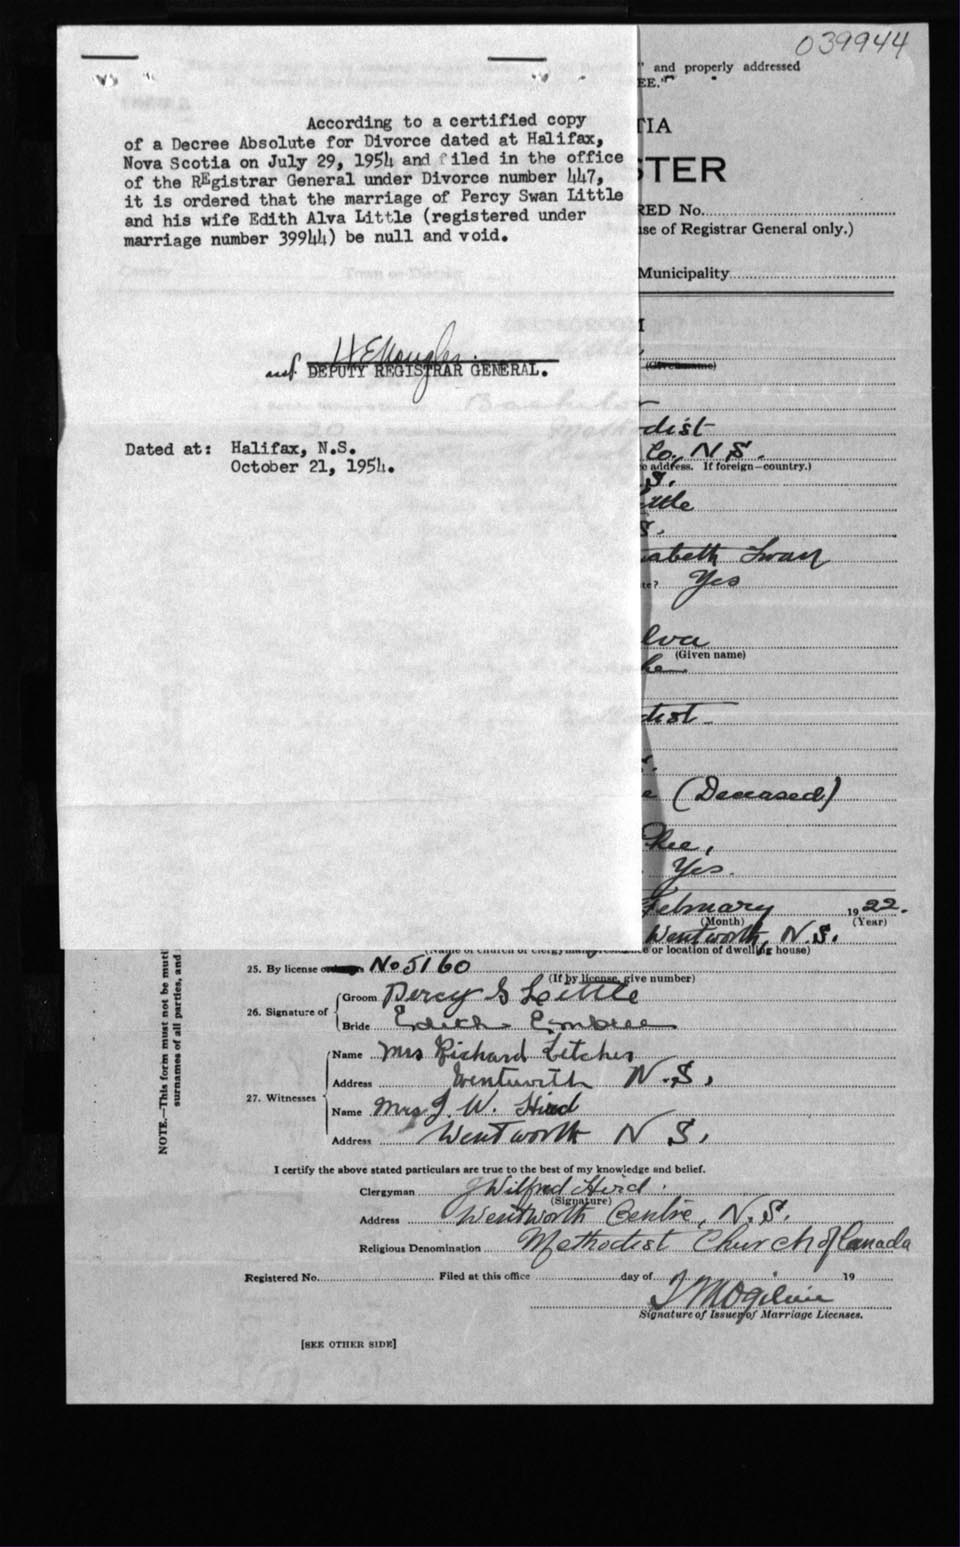 039944
" and properly addressed
EE."
According to a certified copy
of a Decree Absolute for Divorce dated at Halifax,
Nova Scotia on July 29, 1954 and filed in the office
of the REgistrar General under Divorce number 447,
it is ordered that the marriage of Percy Swan Little
and his wife Edith Alva Little (registered under
marriage number 39944) be null and void.
DEPUTY REGISTRAR GENERAL.
Dated at: Halifax, N.S.
October 21, 1954.
TIA
STER
RED No.
se of Registrar General only.)
Municipality
(Given name)
dist
Co. N S.
e address. If foreign—country.)
S.
ittle
S.
sabeth Swan
te? Yes
lva
(Given name)
dist
e (Deceased)
Yes.
February 1922.
(Month) (Year)
Wentworth, N.S.
(Name of church or clergyman's residence or location of dwelling house)
25. By license or No 5160
(If by license, give number)
26. Signature of
Groom Percy S Little
Bride Edith Embree
27. Witnesses
Name Mrs Richard Letcher
Address Wentworth N.S,
Name Mrs J. W. Hird
Address Wentworth N S,
I certify the above stated particulars are true to the best of my knowledge and belief.
Clergyman J Wilfred Hird.
(Signature)
Address Wentworth Centre, N.S.
Religious Denomination Methodist Church of Canada
Registered No. Filed at this office day of 19
Signature of Issuer of Marriage Licenses.
[SEE OTHER SIDE]
NOTE.—This form must not be muti
surnames of all parties, and